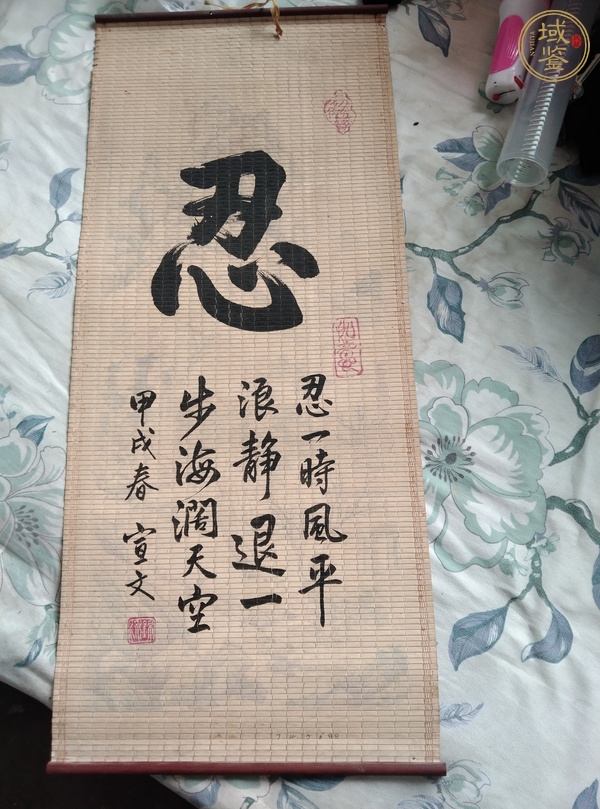 忍
忍一時風平
浪静退一
步海濶天空
甲戌春 宣文
域鉴
YUJIAN